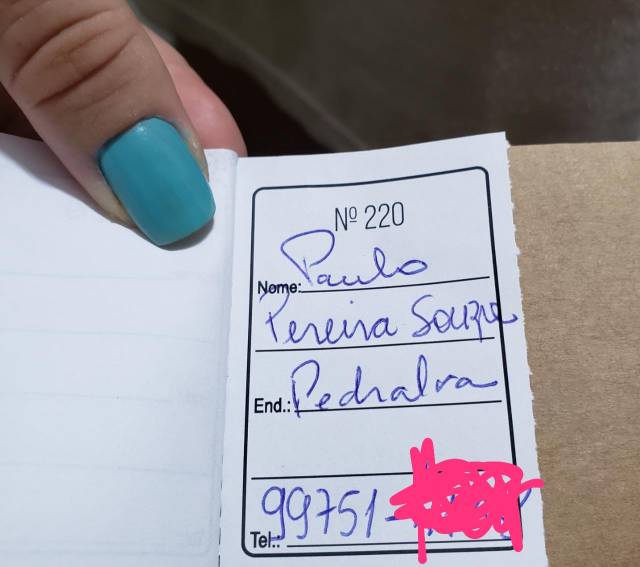 Nº 220
Nome: Paulo
Pereira Souza
End.: Pedralva
Tel.: 99751-